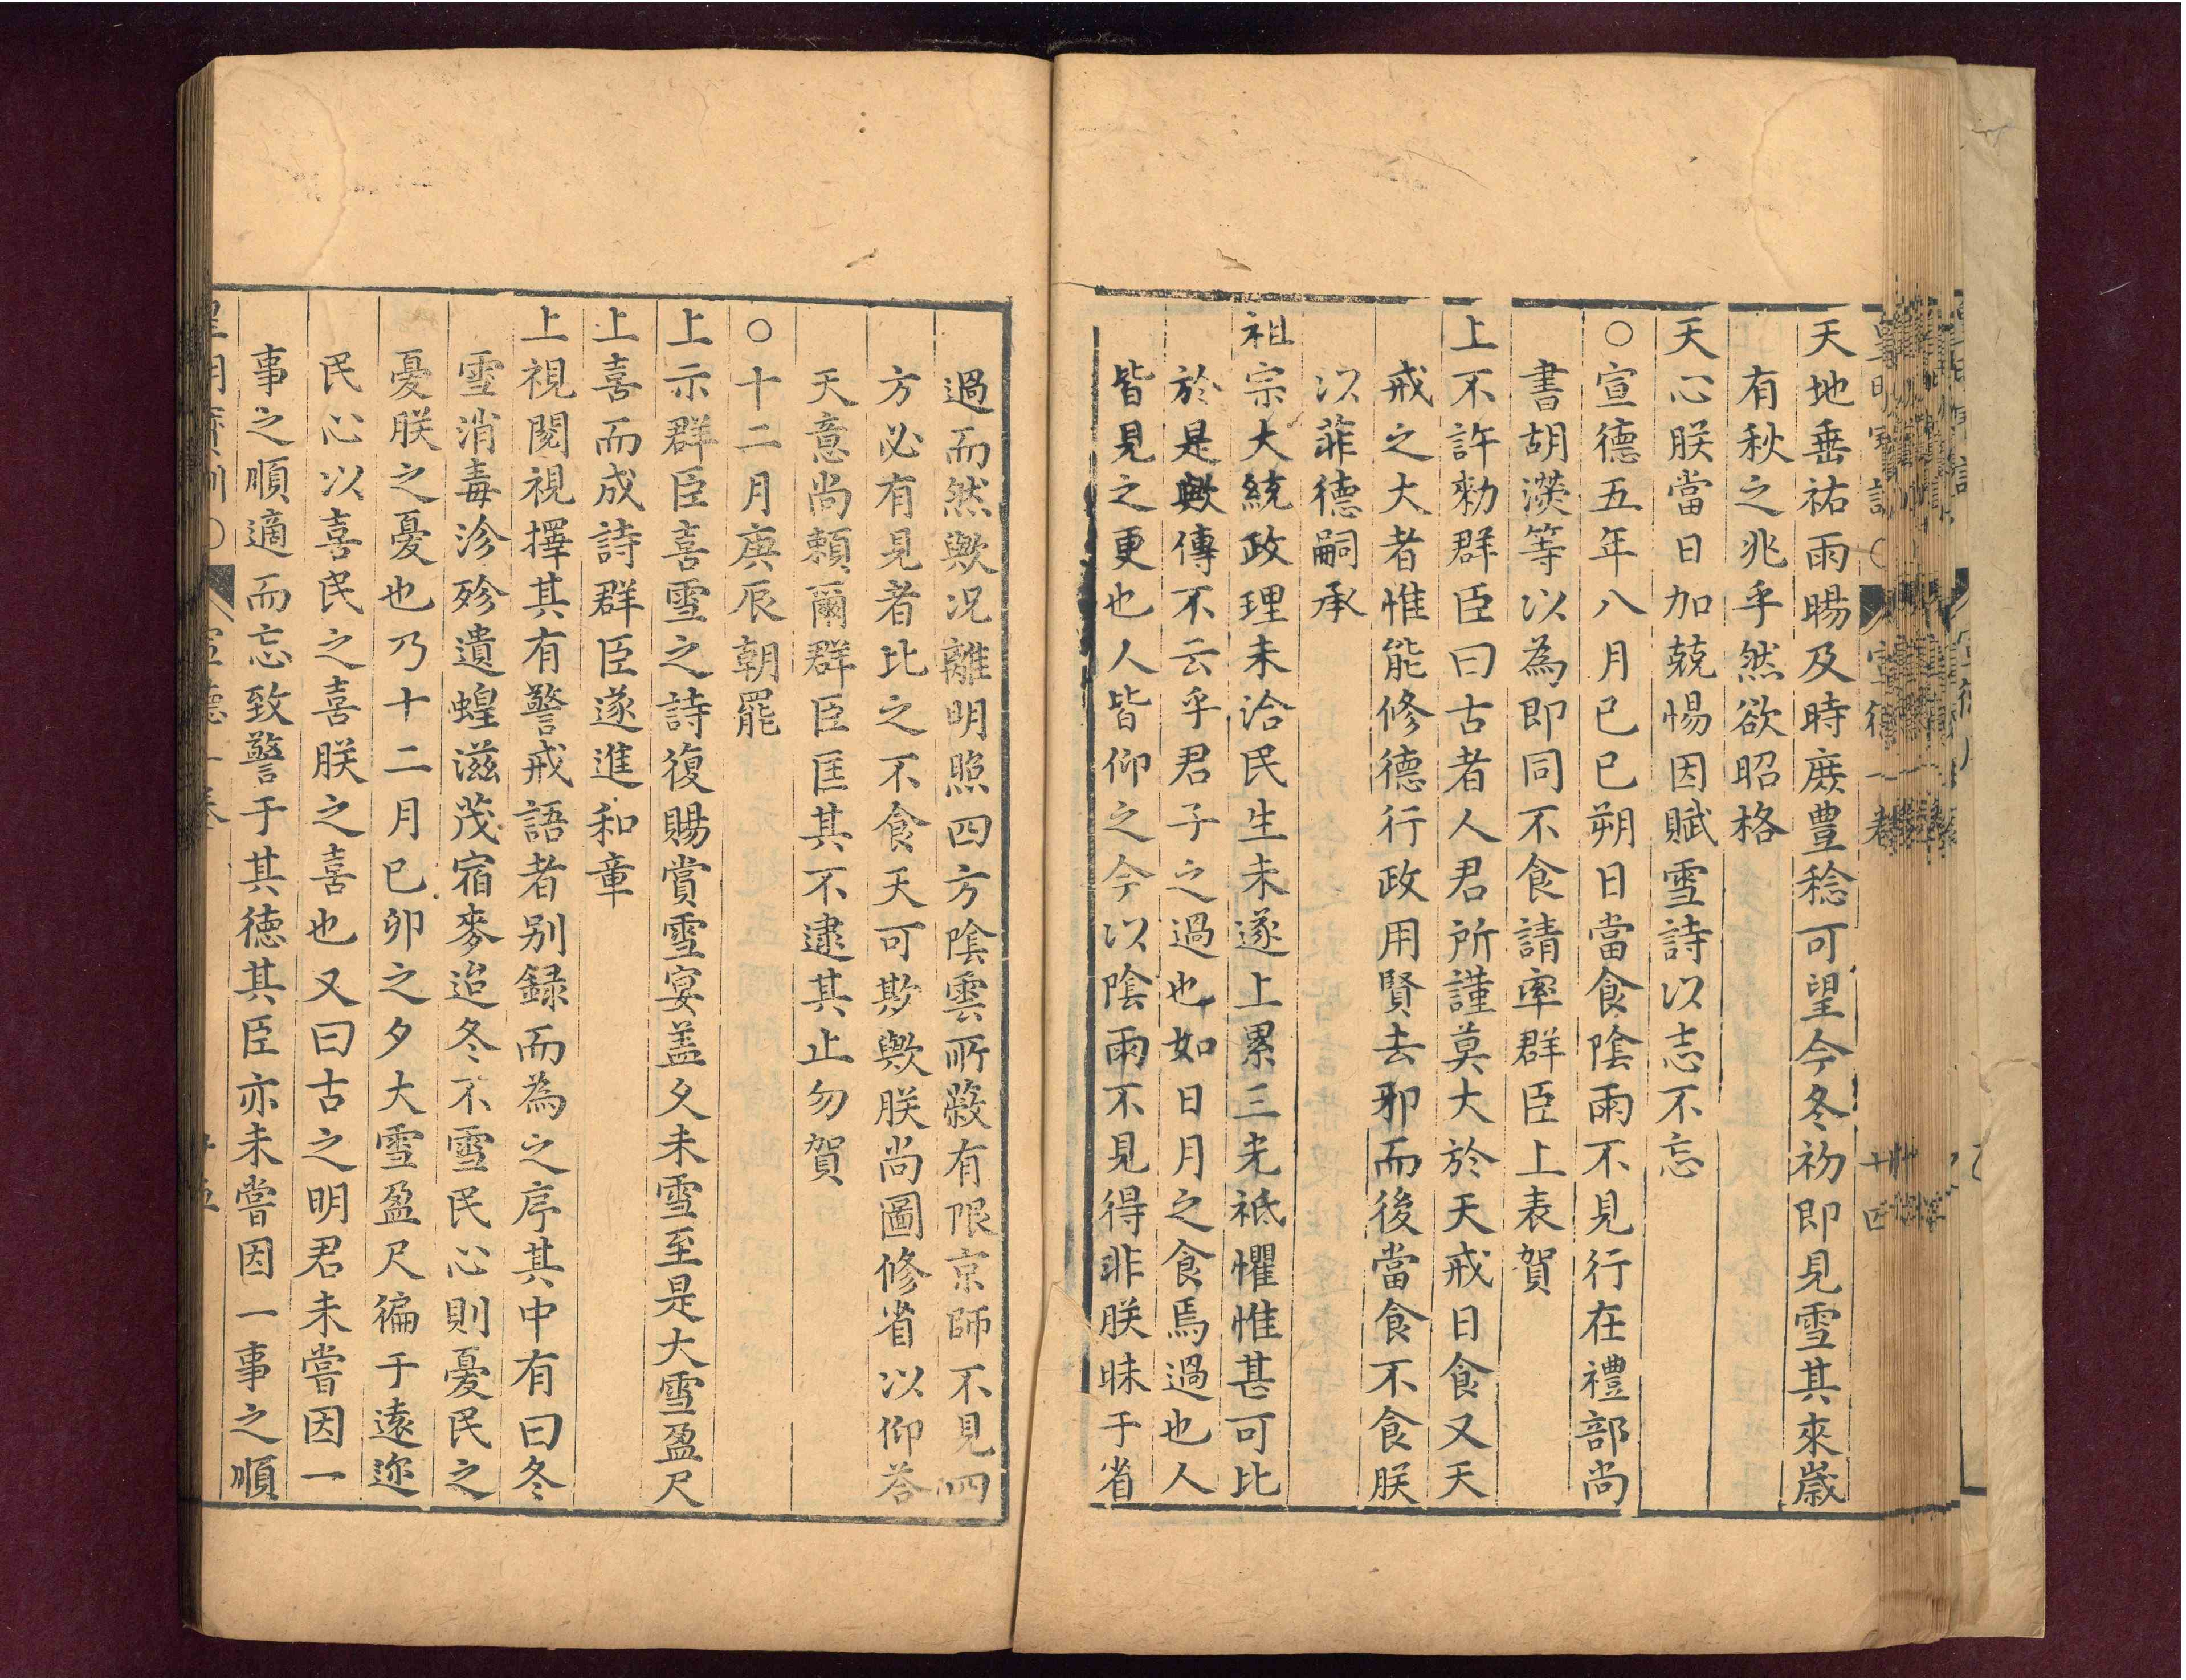 天地垂祐雨暘及時庶豊稔可望今冬初即見雪其來歲
有秋之兆乎然欲昭格
天心朕當日加兢惕因賦雪詩以志不忘
○宣德五年八月已巳朔日當食陰雨不見行在禮部尚
書胡濙等以為即同不食請率群臣上表賀
上不許勑群臣曰古者人君所謹莫大於天戒日食又天
戒之大者惟能修德行政用賢去邪而後當食不食朕
以菲德嗣承
祖宗大統政理未洽民生未遂上累三光祗懼惟甚可比
於是歟傳不云乎君子之過也如日月之食焉過也人
皆見之更也人皆仰之今以陰雨不見得非朕昧于省
過而然歟况離明照四方陰雲所蔽有限京師不見四
方必有見者比之不食天可欺歟朕尚圖修省以仰荅
天意尚賴爾群臣匡其不逮其止勿賀
○十二月庚辰朝罷
上示群臣喜雪之詩復賜賞雪宴盖久未雪至是大雪盈尺
上喜而成詩群臣遂進和章
上視閱視擇其有警戒語者别録而為之序其中有曰冬
雪消毒沴殄遺蝗滋茂宿麥迨冬不雪民心則憂民之
憂朕之憂也乃十二月已卯之夕大雪盈尺徧于遠迩
民心以喜民之喜朕之喜也又曰古之明君未嘗因一
事之順適而忘致警于其德其臣亦未嘗因一事之順